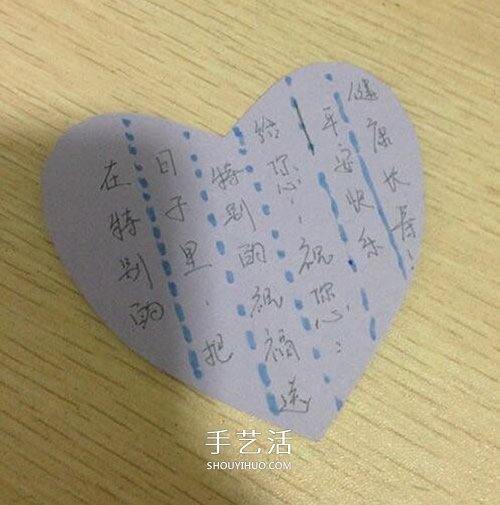 在特别的
日子里，把
特别的祝福送
给您，祝您：
平安快乐
健康长寿！
手艺活
SHOUYIHUO.COM